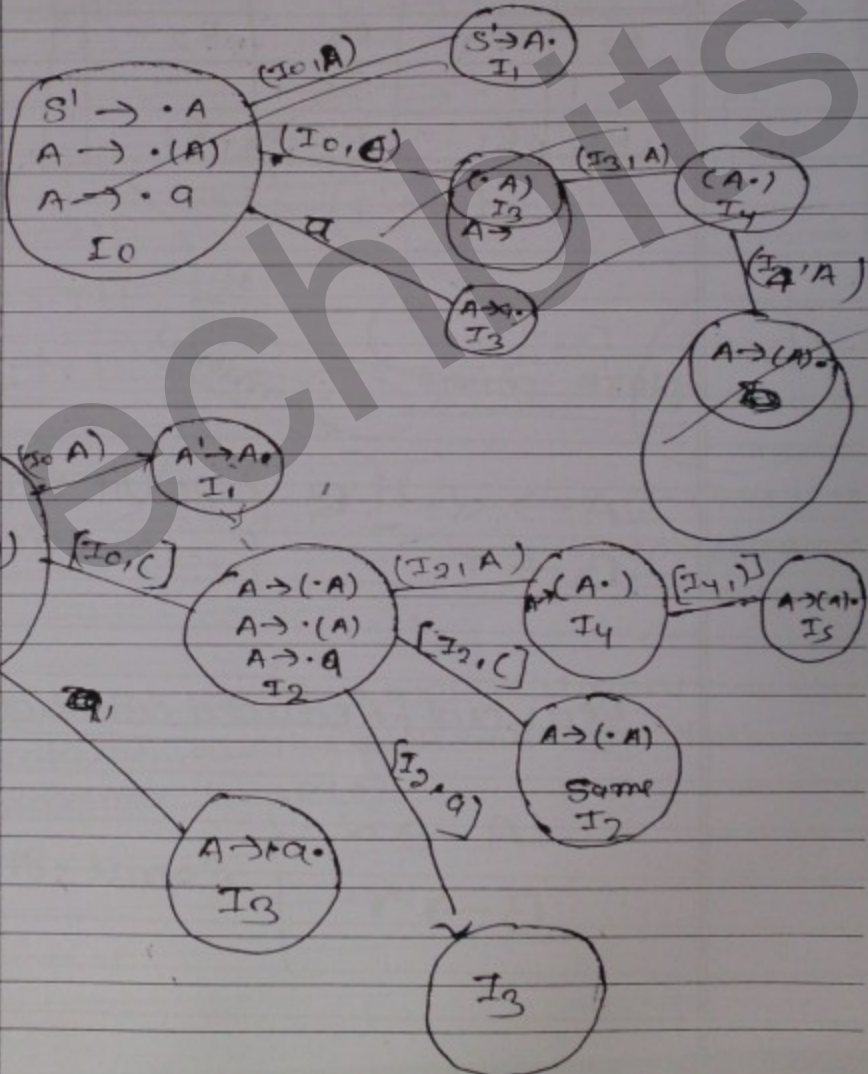 S' → A·
I1
(I0, A)
S' → · A
A → · (A)
A → · a
I0
(I0, ()
(· A)
I3
A →
(I3, A)
(A·)
I4
a
A → a·
I3
A → (A)·
(I0 A)
A' → A·
I1
)
[I0, (]
A → (· A)
A → · (A)
A → · a
I2
(I2, A)
A → (A·)
I4
[I4, )]
A → (A)·
I5
[I2, (]
A → (· A)
Same
I2
[I2, a]
A → a·
I3
I3
echbits